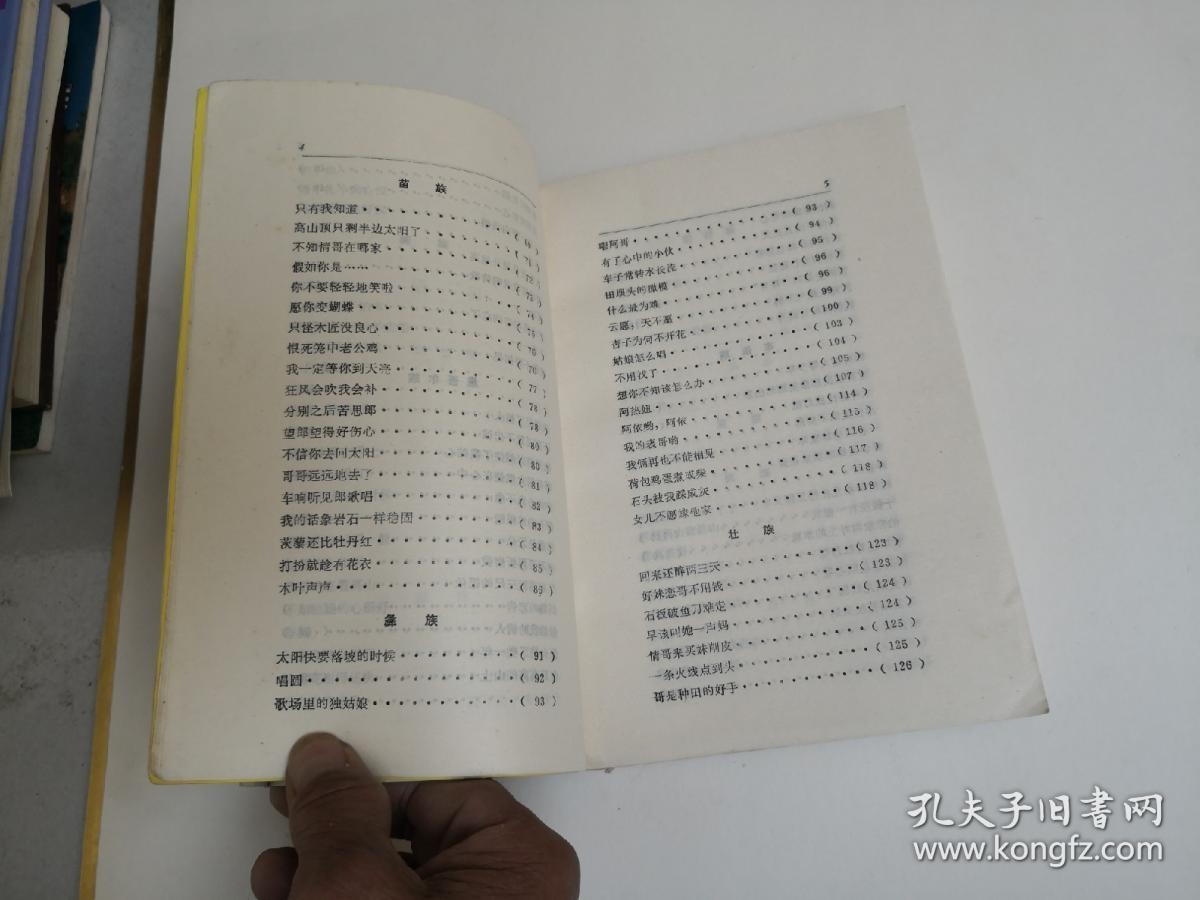 4
苗 族
只有我知道·········(69)
高山顶只剩半边太阳了·········(69)
不知情哥在哪家·········(71)
假如你是……·········(72)
你不要轻轻地笑啦·········(73)
愿你变蝴蝶·········(74)
只怪木匠没良心·········(75)
恨死笼中老公鸡·········(76)
我一定等你到天亮·········(76)
狂风会吹我会补·········(77)
分别之后苦思郎·········(78)
望郎望得好伤心·········(80)
不信你去问太阳·········(80)
哥哥远远地去了·········(81)
车响听见郎歌唱·········(82)
我的话象岩石一样稳固·········(83)
茨藜还比牡丹红·········(84)
打扮就趁有花衣·········(85)
木叶声声·········(86)
彝 族
太阳快要落坡的时候·········(91)
唱圆·········(92)
歌场里的独姑娘·········(93)
5
阿哥·········(93)
有了心中的小伙·········(94)
车子常转水长流·········(95)
田坝头的·········(96)
什么最为难·········(96)
云愿，天不愿·········(99)
杏子为何不开花·········(100)
姑娘怎么唱·········(103)
不用找了·········(104)
想你不知该怎么办·········(105)
阿热妞·········(107)
阿依哟，阿依·········(114)
我的表哥哟·········(115)
我俩再也不能相见·········(116)
荷包鸡蛋煮成·········(117)
石头被我踩成灰·········(118)
女儿不愿嫁他家·········(118)
壮 族
回来还醉两三天·········(123)
好妹恋哥不用钱·········(123)
石板破鱼刀难走·········(124)
早该叫她一声妈·········(124)
情哥来买妹削皮·········(125)
一条火线点到头·········(125)
哥是种田的好手·········(126)
孔夫子旧书网
www.kongfz.com